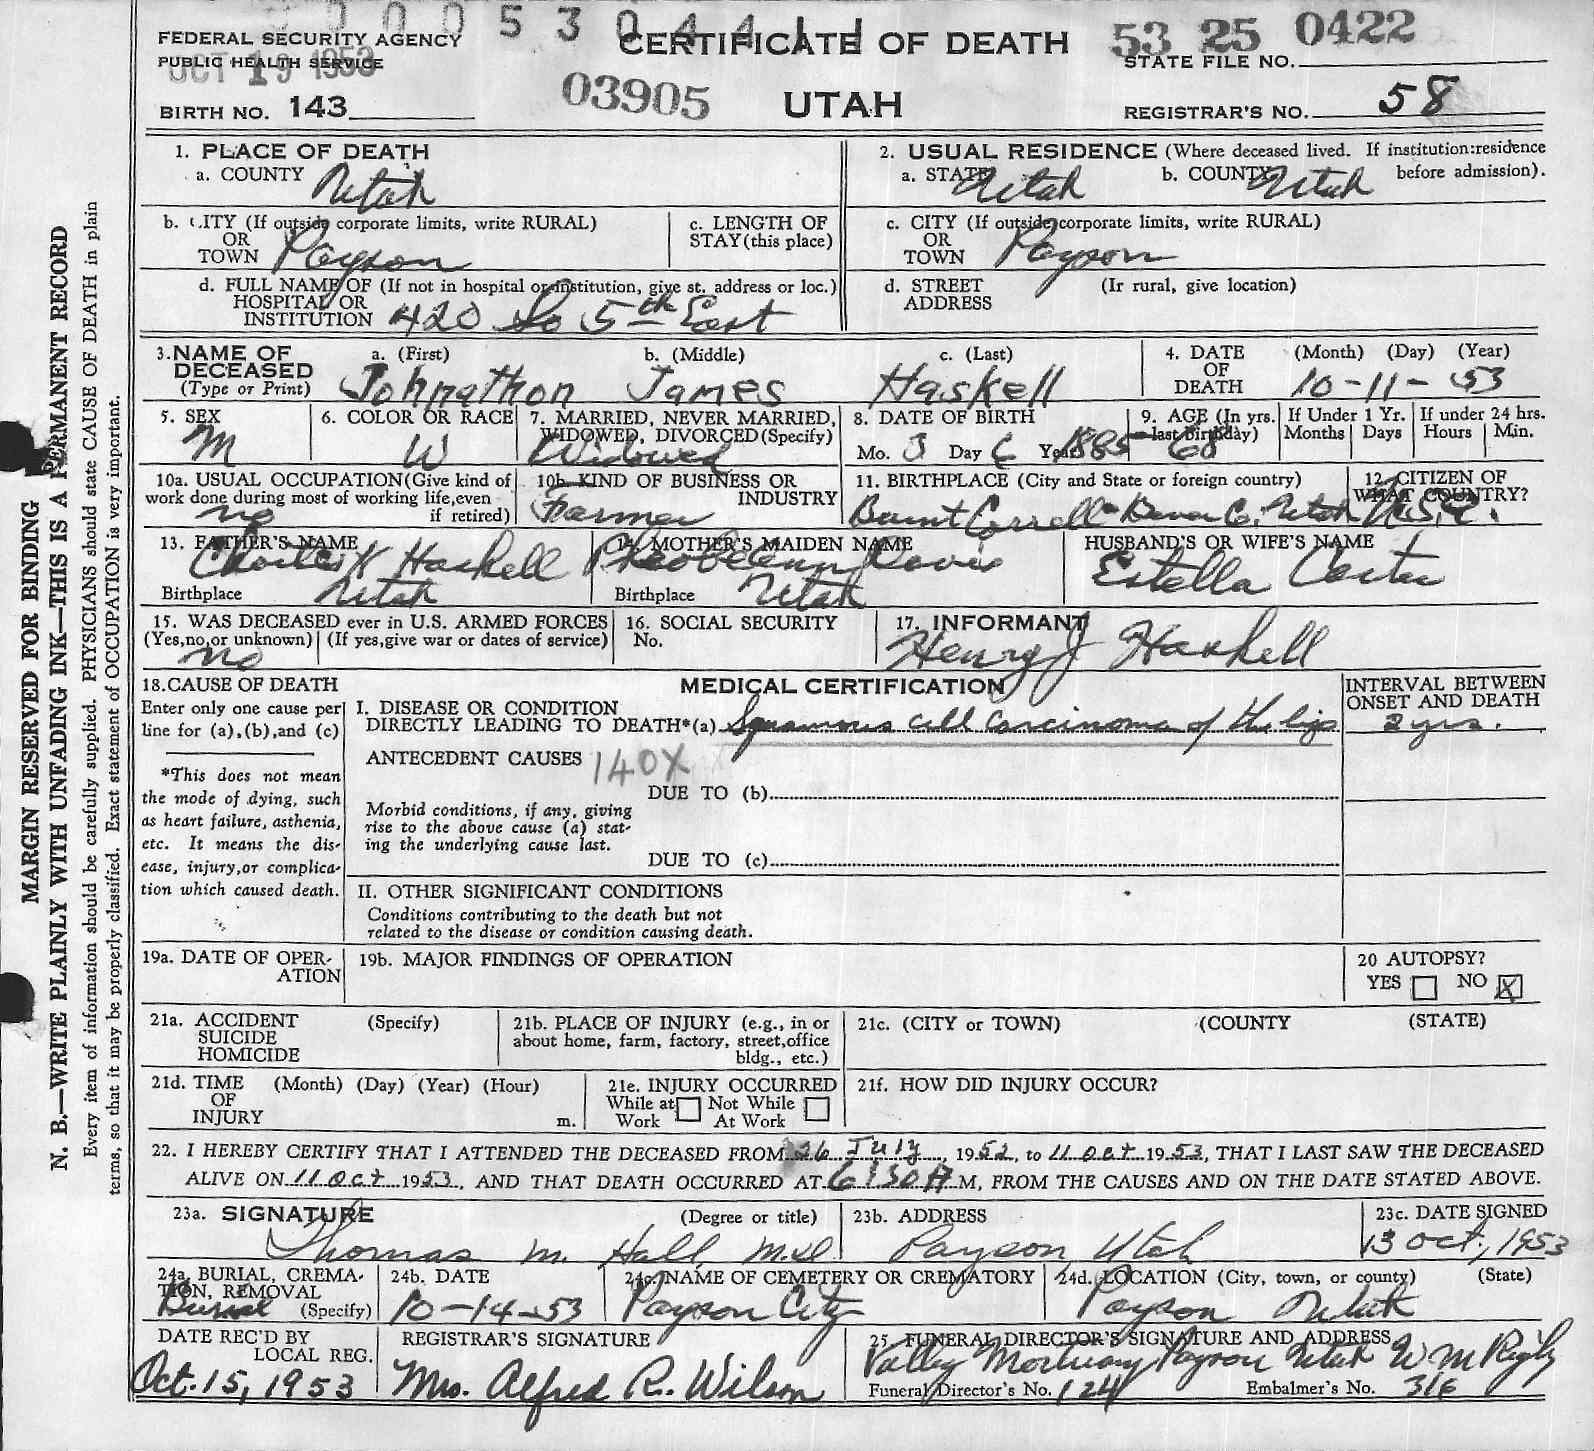 0005304411
FEDERAL SECURITY AGENCY CERTIFICATE OF DEATH 53 25 0422
PUBLIC HEALTH SERVICE STATE FILE NO.
OCT 19 1953
BIRTH NO. 143 03905 UTAH REGISTRAR'S NO. 58
1. PLACE OF DEATH
a. COUNTY Utah
2. USUAL RESIDENCE (Where deceased lived. If institution:residence before admission).
a. STATE Utah b. COUNTY Utah
b. CITY (If outside corporate limits, write RURAL)
OR
TOWN Payson
c. LENGTH OF
STAY (this place)
c. CITY (If outside corporate limits, write RURAL)
OR
TOWN Payson
d. FULL NAME OF (If not in hospital or institution, give st. address or loc.)
HOSPITAL OR
INSTITUTION 420 So 5th East
d. STREET (Ir rural, give location)
ADDRESS
3. NAME OF a. (First) b. (Middle) c. (Last)
DECEASED
(Type or Print) Johnathon James Haskell
4. DATE (Month) (Day) (Year)
OF
DEATH 10-11-53
5. SEX
M
6. COLOR OR RACE
W
7. MARRIED, NEVER MARRIED,
WIDOWED, DIVORCED (Specify)
Widowed
8. DATE OF BIRTH
Mo. 3 Day 6 Year 1885
9. AGE (In yrs.
last birthday)
68
If Under 1 Yr.
Months Days
If under 24 hrs.
Hours Min.
10a. USUAL OCCUPATION (Give kind of
work done during most of working life, even
if retired)
no
10b. KIND OF BUSINESS OR
INDUSTRY
Farmer
11. BIRTHPLACE (City and State or foreign country)
Co. Utah
12. CITIZEN OF
WHAT COUNTRY?
U.S.A.
13. FATHER'S NAME
Haskell
Birthplace Utah
14. MOTHER'S MAIDEN NAME
Davis
Birthplace Utah
HUSBAND'S OR WIFE'S NAME
Estella
15. WAS DECEASED ever in U.S. ARMED FORCES
(Yes, no, or unknown) (If yes, give war or dates of service)
no
16. SOCIAL SECURITY
No.
17. INFORMANT
Henry J Haskell
18. CAUSE OF DEATH
Enter only one cause per
line for (a), (b), and (c)
*This does not mean
the mode of dying, such
as heart failure, asthenia,
etc. It means the dis-
ease, injury, or complica-
tion which caused death.
MEDICAL CERTIFICATION
I. DISEASE OR CONDITION
DIRECTLY LEADING TO DEATH*(a) Squamous cell carcinoma of the lips
ANTECEDENT CAUSES 140X
DUE TO (b)
Morbid conditions, if any, giving
rise to the above cause (a) stat-
ing the underlying cause last.
DUE TO (c)
II. OTHER SIGNIFICANT CONDITIONS
Conditions contributing to the death but not
related to the disease or condition causing death.
INTERVAL BETWEEN
ONSET AND DEATH
2 yrs.
19a. DATE OF OPER-
ATION
19b. MAJOR FINDINGS OF OPERATION
20 AUTOPSY?
YES NO X
21a. ACCIDENT (Specify)
SUICIDE
HOMICIDE
21b. PLACE OF INJURY (e.g., in or
about home, farm, factory, street, office
bldg., etc.)
21c. (CITY or TOWN) (COUNTY (STATE)
21d. TIME (Month) (Day) (Year) (Hour)
OF
INJURY m.
21e. INJURY OCCURRED
While at Not While
Work At Work
21f. HOW DID INJURY OCCUR?
22. I HEREBY CERTIFY THAT I ATTENDED THE DECEASED FROM 26 July, 1952, to 11 Oct 1953, THAT I LAST SAW THE DECEASED
ALIVE ON 11 Oct 1953, AND THAT DEATH OCCURRED AT 6:30 A M, FROM THE CAUSES AND ON THE DATE STATED ABOVE.
23a. SIGNATURE (Degree or title)
Thomas M. Hall M.D.
23b. ADDRESS
Payson, Utah
23c. DATE SIGNED
13 Oct, 1953
24a. BURIAL, CREMA-
TION, REMOVAL
(Specify)
Burial
24b. DATE
10-14-53
24c. NAME OF CEMETERY OR CREMATORY
Payson City
24d. LOCATION (City, town, or county) (State)
Payson Utah
DATE REC'D BY
LOCAL REG.
Oct. 15, 1953
REGISTRAR'S SIGNATURE
Mrs. Alfred R. Wilson
25. FUNERAL DIRECTOR'S SIGNATURE AND ADDRESS
Valley Mortuary Payson Utah W M Rigby
Funeral Director's No. 124 Embalmer's No. 316
MARGIN RESERVED FOR BINDING
N. B.—WRITE PLAINLY WITH UNFADING INK—THIS IS A PERMANENT RECORD
Every item of information should be carefully supplied. PHYSICIANS should state CAUSE OF DEATH in plain
terms, so that it may be properly classified. Exact statement of OCCUPATION is very important.